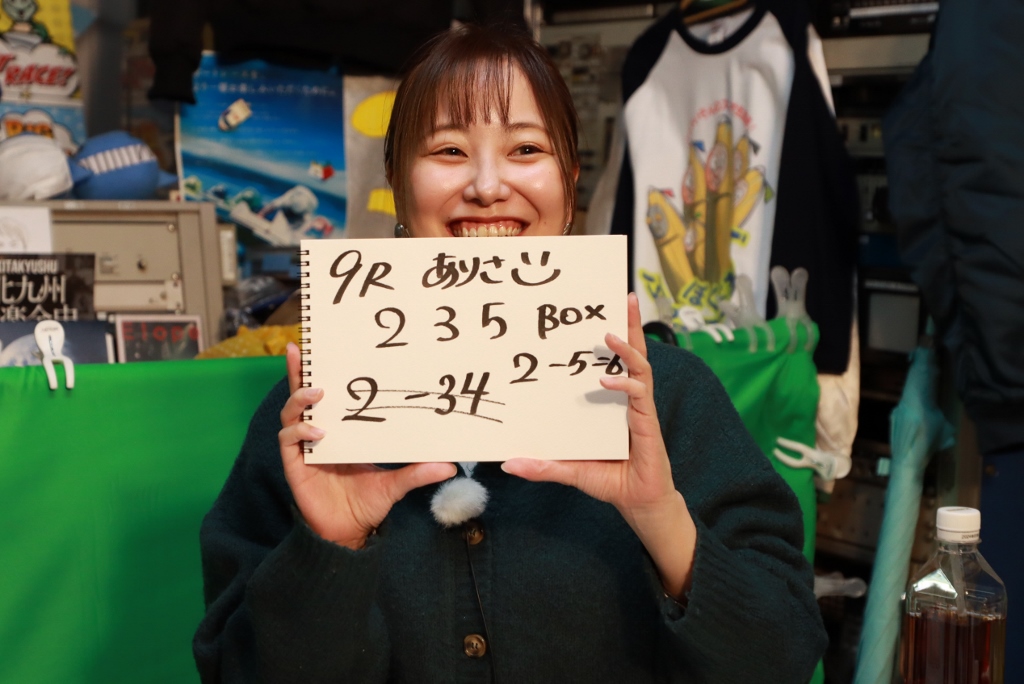 9R ありさ
2 3 5 BOX
2-5=6
2-34
北九州